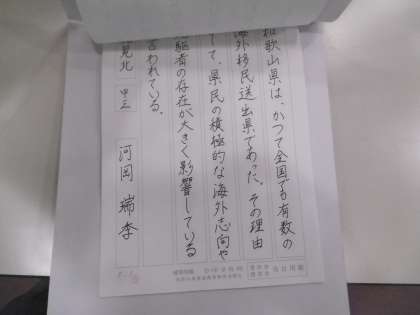 和歌山県は、かつて全国でも有数の
海外移民送出県であった。その理由
して、県民の積極的な海外志向や
駆者の存在が大きく影響している
言われている。
見北 中三 河岡 瑞季